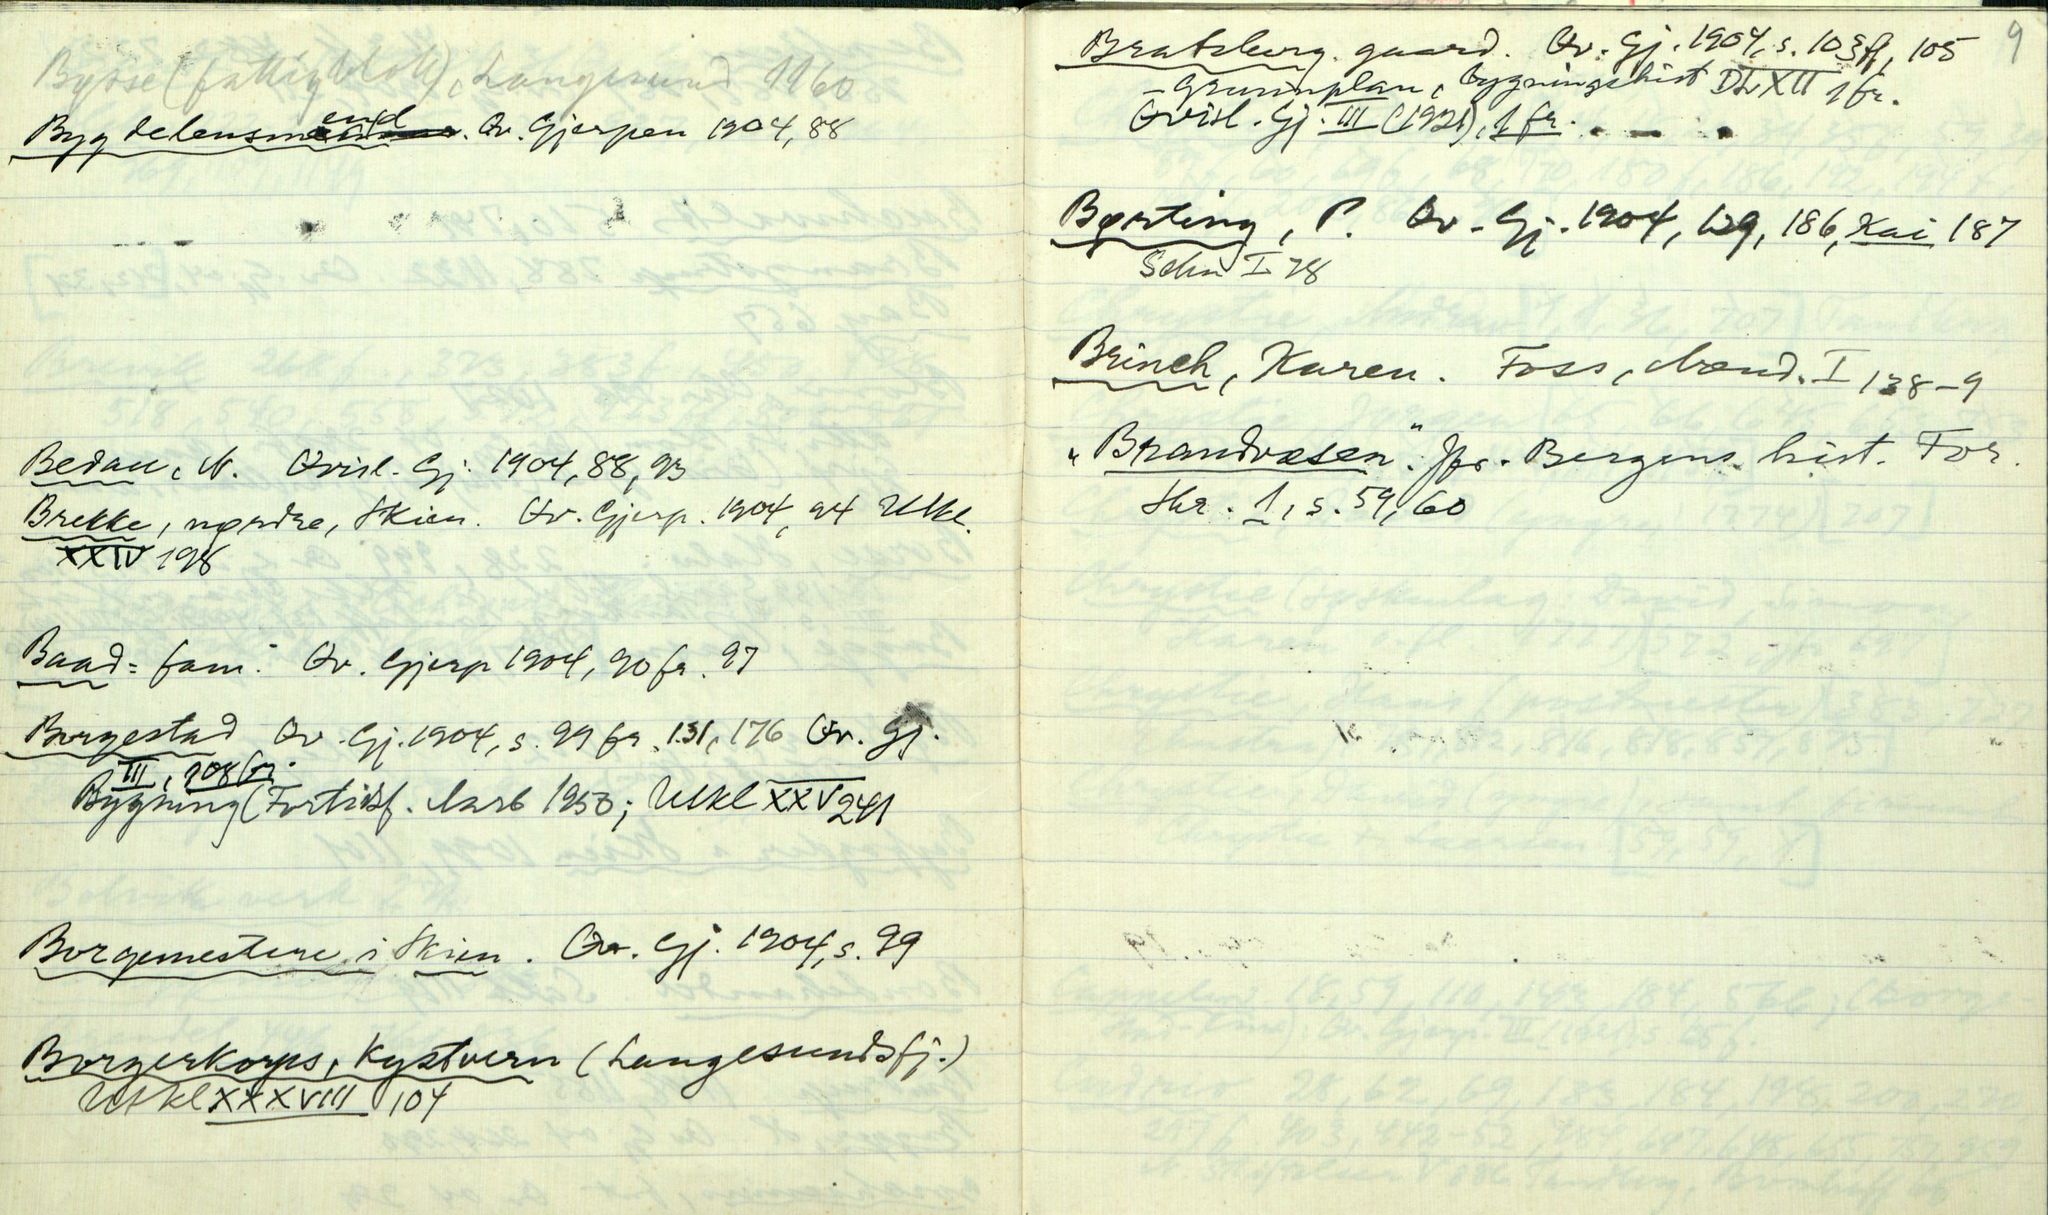 Bysse (fattigblokk), Langesund 1160
Bygdelensmend. Qv. Gjerpen 1904, 88
Bedau, N. Qvisl. Gj. 1904, 88, 93
Brekke, nørdre, Skien. Qv. Gjerp. 1904, 94 Utkl.
XXIV 198
Baad= fam: Qv. Gjerp 1904, 90 fr. 97
Borgestad Qv. Gj. 1904, s. 99 fr. 131, 176 Qv. Gj.
III, 208 fr.
Bygning (Fortidsf. Aarb 1950; Utkl XXV 241
Borgemestere i Skien. Qv. Gj. 1904, s. 99
Borgerkorps, Kystvern (Langesundsfj.)
Utkl XXXVIII 104
9
Bratsberg gaard. Qv. Gj. 1904, s. 103 ff, 105
- Grunnplan, bygningshist DL XII 1 fr.
Qvisl. Gj. III (1921), 1 fr.
Børting, P. Qv. Gj. 1904, 129, 186, Kai 187
Schn I 78
Brinch, Karen. Foss, Arend. I 138-9
"Brandvæsen". Jfr. Bergens hist. For.
Skr. 1, s. 59, 60